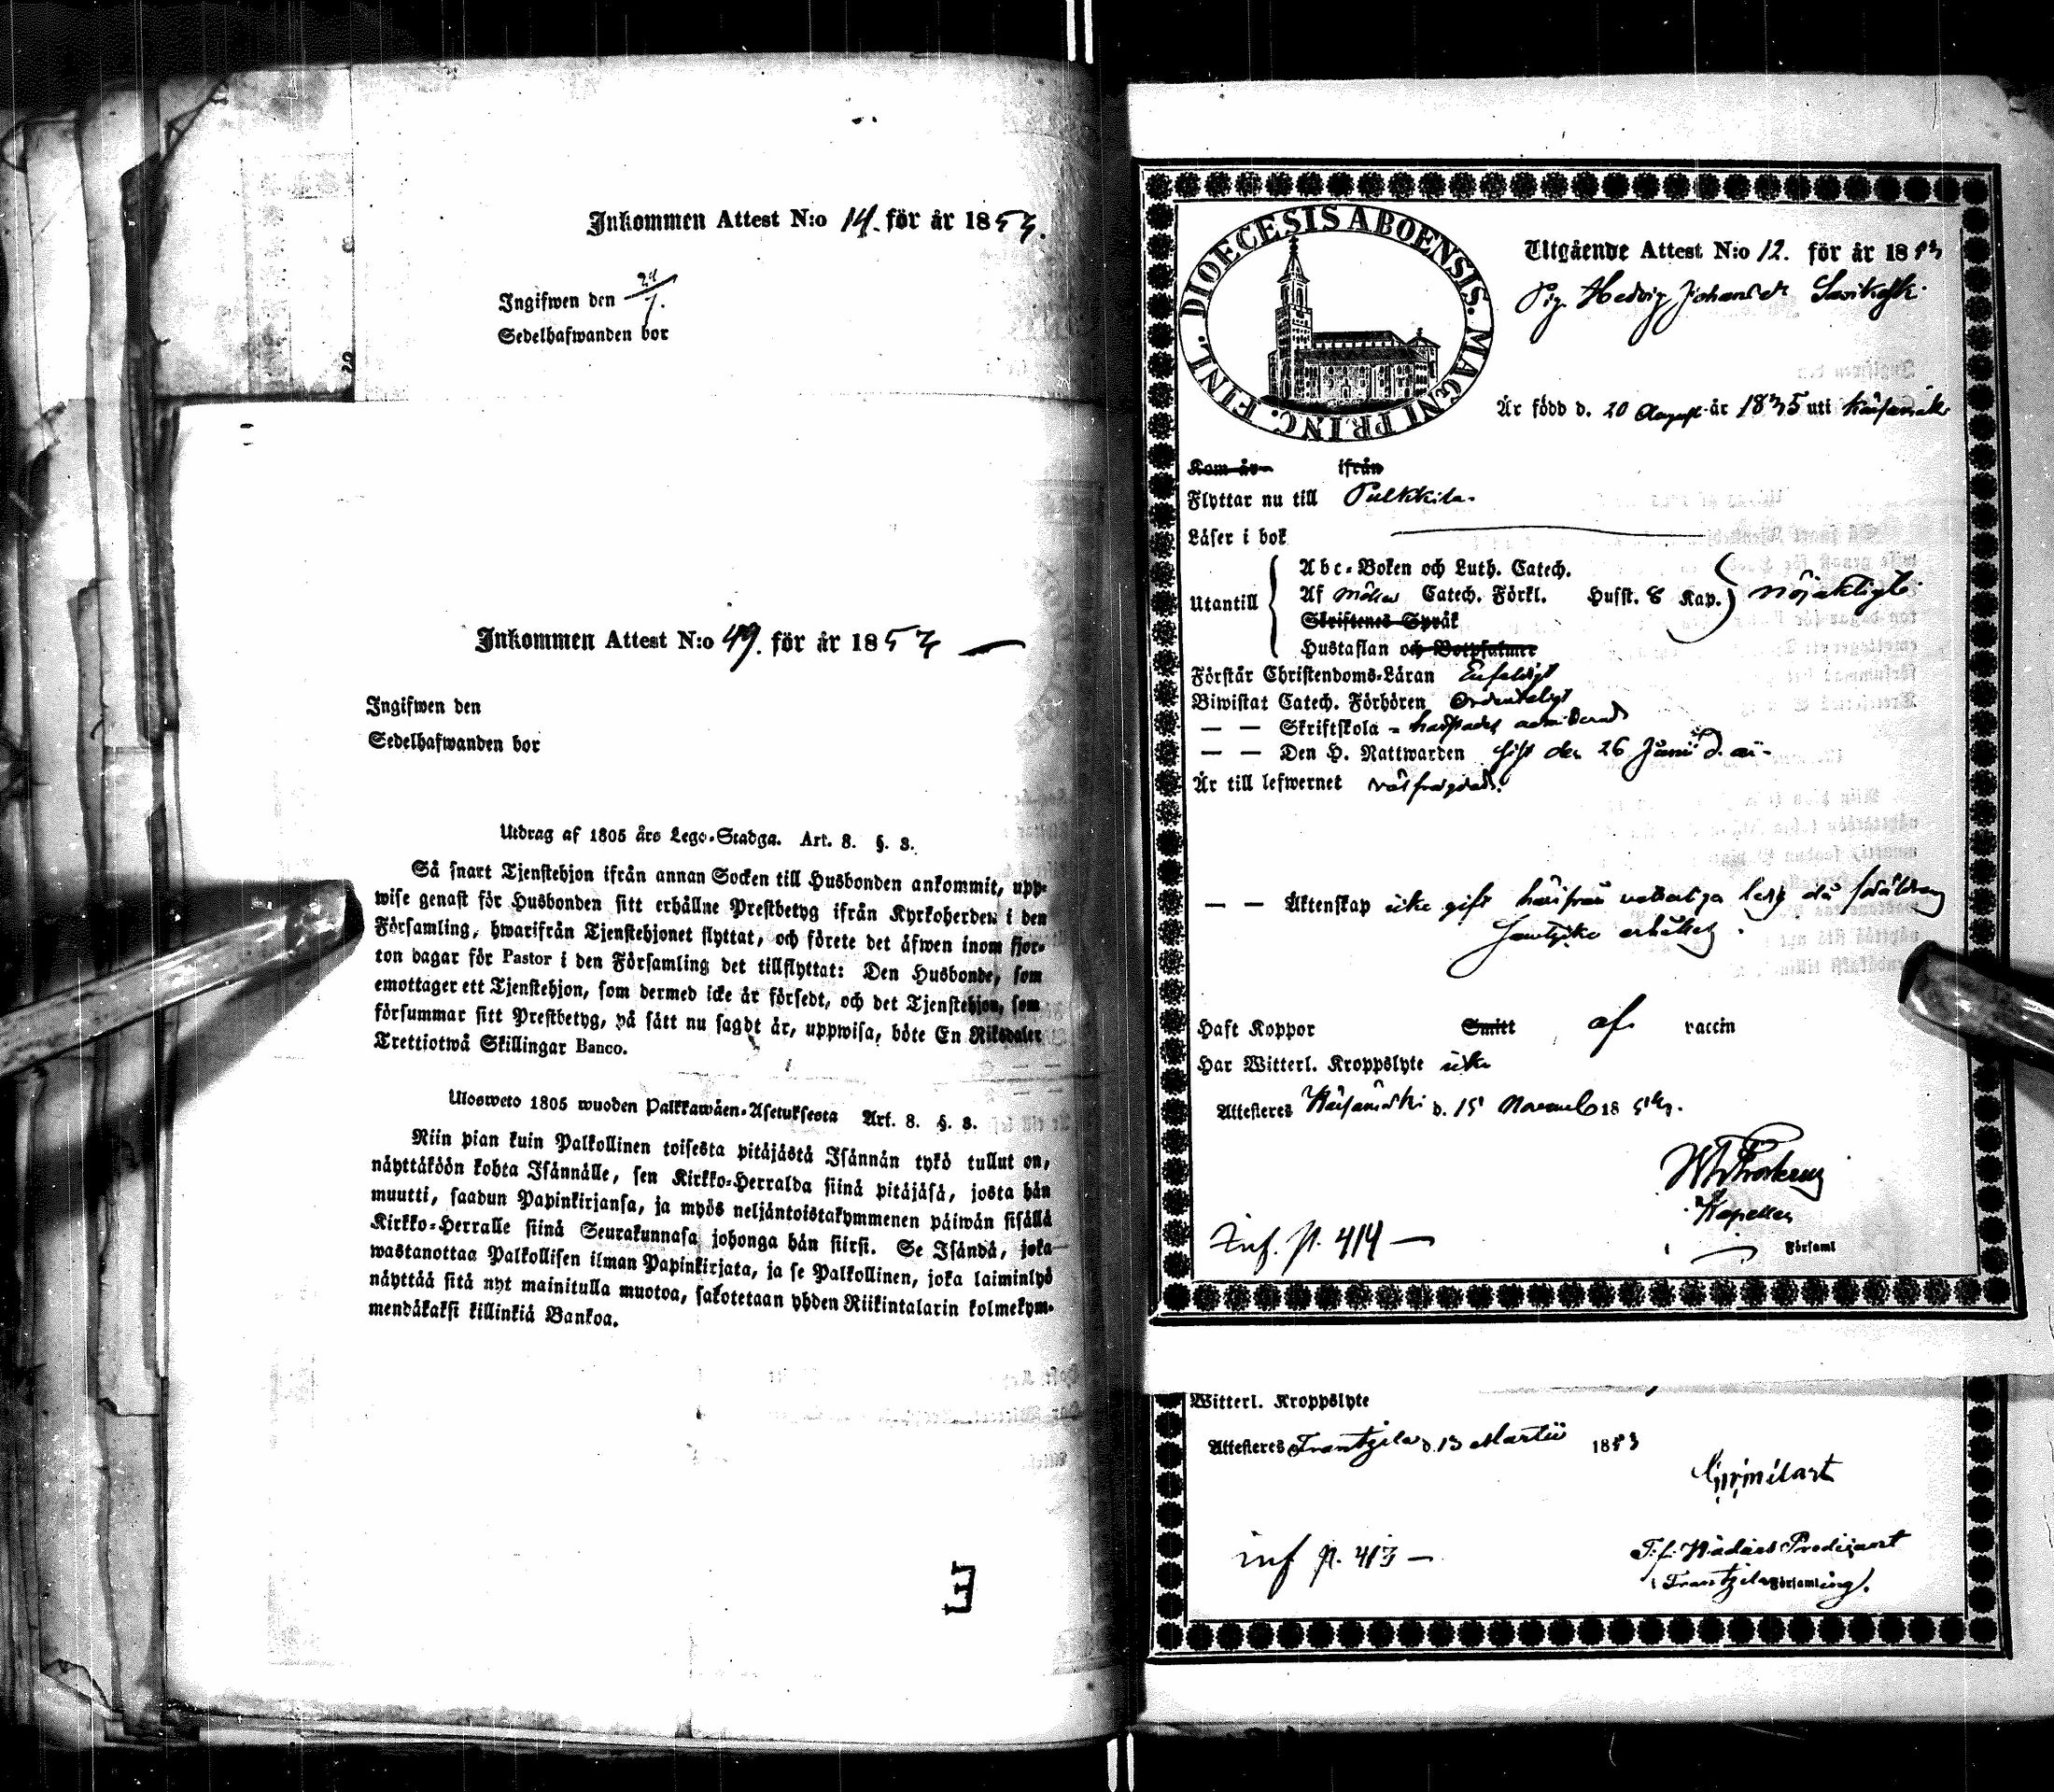 Inkommen Attest N:o 14. för år 1853.
Ingifwen den 29/7.
Sedelhafwanden bor
Inkommen Attest N:o 49. för år 1853 —
Ingifwen den
Sedelhafwanden bor
Utdrag af 1805 års Lego-Stadga. Art. 8. §. 3.
Så snart Tjenstehjon ifrån annan Socken till Husbonden ankommit, upp-
wise genast för Husbonden sitt erhållne Prestbetyg ifrån Kyrkoherden i den
Församling, hwarifrån Tjenstehjonet flyttat, och förete det äfwen inom fjor-
ton dagar för Pastor i den Församling det tillflyttat: Den Husbonde, som
emottager ett Tjenstehjon, som dermed icke är försedt, och det Tjenstehjon, som
försummar sitt Prestbetyg, på sätt nu sagdt är, uppwisa, böte En Riksdaler
Trettiotwå Skillingar Banco.
Ulosweto 1805 wuoden Palkkawäen-Asetuksesta Art. 8. §. 3.
Niin pian kuin Palkollinen toisesta pitäjästä Isännän tykö tullut on,
näyttäköön kohta Isännälle, sen Kirkko-Herralda siinä pitäjäsä, josta hän
muutti, saadun Papinkirjansa, ja myös neljäntoistakymmenen päiwän sisällä
Kirkko-Herralle siinä Seurakunnasa johonga hän siirsi. Se Isändä, joka
wastanottaa Palkollisen ilman Papinkirjata, ja se Palkollinen, joka laiminlyö
näyttää sitä nyt mainitulla muotoa, sakotetaan yhden Riikintalarin kolmekym-
mendäkaksi killinkiä Bankoa.
E
DIOECESIS ABOENSIS. MAGNI PRINC. FINL.
Utgående Attest N:o 12. för år 1853
Pig. Hedvig Johansdr
Är född d. 20 August år 1835 uti
Kom år ifrån
Flyttar nu till Pulkkila.
Läser i bok
Utantill
Abc-Boken och Luth. Catech.
Af Catech. Förkl. Husst. 8 Kap. nöjaktigt
Skriftenes Språk
Hustaflan och Botpsalmer
Förstår Christendoms-Läran Enfaldigt
Biwistat Catech. Förhören Ordenteligt
— — Skriftskola
— — Den H. Nattwarden sist den 26 Junii d. år
Är till lefwernet välfrägdad.
— — Äktenskap icke gift härifrån
erhållet.
Haft Koppor Smitt af vaccin
Har Witterl. Kroppslyte icke
Attesteres d. 15 Novemb 1853.
Kapellan
i Församl
Inf. p. 414 —
Witterl. Kroppslyte
Attesteres Frantzila d. 13 Martii 1853
T.f. Nådårs Predikant
i Frantzila Församling.
inf p. 413 —